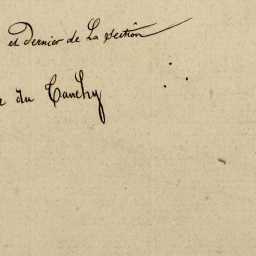 et Dernier de La Section
du Tanchy